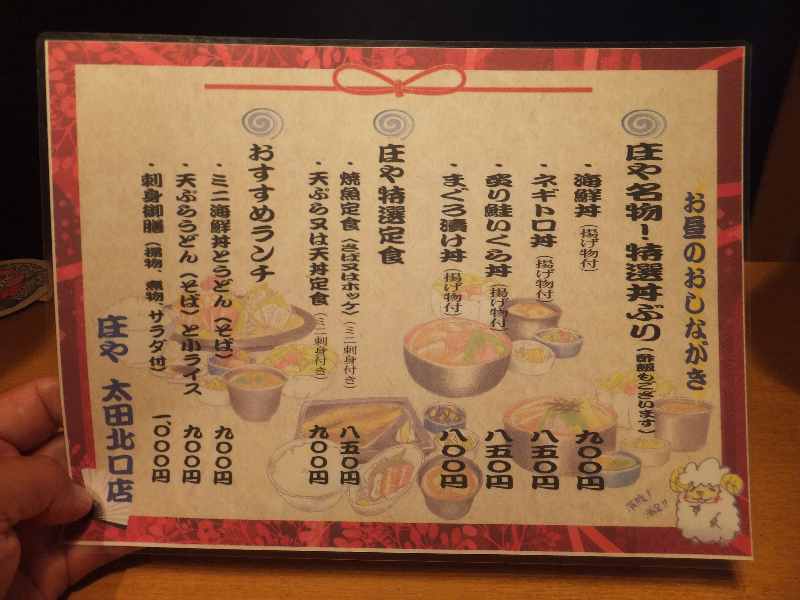 お昼のおしながき
庄や名物！特選丼ぶり（酢飯もございます）
・海鮮丼（揚げ物付） 九〇〇円
・ネギトロ丼（揚げ物付） 八五〇円
・炙り鮭いくら丼（揚げ物付） 八五〇円
・まぐろ漬け丼（揚げ物付） 八〇〇円
庄や特選定食
・焼魚定食（さば又はホッケ）（ミニ刺身付き） 八五〇円
・天ぷら又は天丼定食（ミニ刺身付き） 九〇〇円
おすすめランチ
・ミニ海鮮丼とうどん（そば） 九〇〇円
・天ぷらうどん（そば）と小ライス 九〇〇円
・刺身御膳（揚物、煮物、サラダ付） 一、〇〇〇円
庄や 太田北口店
満腹！
満足！！